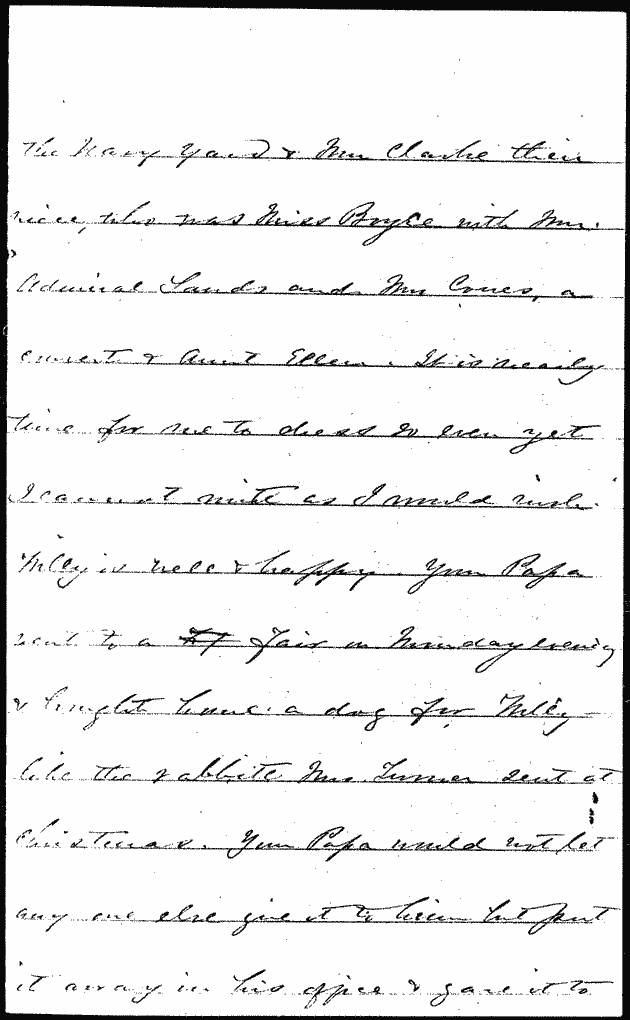 the Navy Yard & Mrs Clarke their
niece, who was Miss Boyle with Mrs.
Admiral Sands and Mrs Coues, a
convert & Aunt Ellen. It is nearly
time for me to dress so even yet
I cannot write as I would wish.
Willy is well & happy. Your Papa
went to a Fair on Monday evening
& brought home a dog for Willy
like the rabbits Mrs. Turner sent at
Christmas. Your Papa would not let
any one else give it to him but put
it away in his office & gave it to